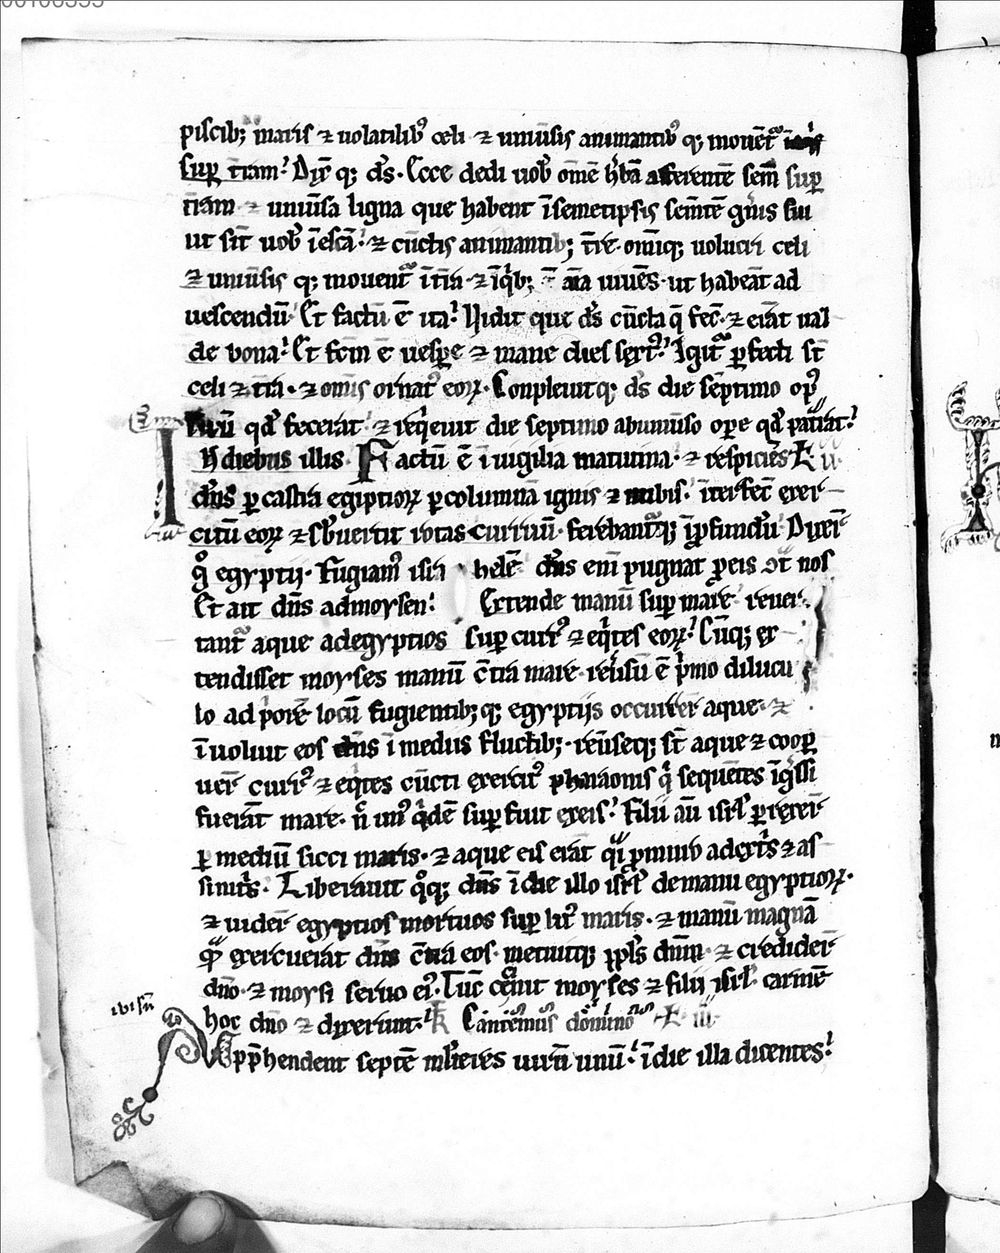 piscib; maris ⁊ uolatilib⁹ celi ⁊ uniũsis animantib⁹ q; mouẽt᷑
sup̱ t̃ram.᾽ Dix̃ q; d̃s. Ecce dedi uob̃ om̃e h̾bã afferentẽ sem̃ sup̱
t̃ram ⁊ uniũsa ligna que habent ĩsemetipsis sem̃tẽ gn̾is sui
ut sĩt uob̃ ĩescã.᾽ ⁊ cũctis animantib; t̃re. om̃iq; uolucri celi
⁊ uniũsis q; mouent᷑ ĩ t̃ra ⁊ ĩ qͥb; ẽ aĩa uiuẽs. ut habeãt ad
uescendũ. Et factũ ẽ ita.᾽ Uidit que d̃s cũcta q̃ fec̃. ⁊ erãt ual
de bona.᾽ Et fc̃m ẽ uesp̱e ⁊ mane dies sext⁹.᾽ Igit᷑ p̱fecti st̃
celi ⁊ t̃ra. ⁊ om̃is ornat⁹ eoꝝ. Conpleuitq; d̃s die sẽptimo op⁹
suũ qd̃ fecerat.᾽ ⁊ req̾euit die septimo abuniũso op̱e qd̃ pat̾rat.᾽
In diebus illis. Factũ ẽ ĩ uigilia matutina.᾽ ⁊ respiciẽs L̃ ii.
dñs p̱ castra egiptioꝝ p̱ columnã ignis ⁊ nubis. ĩterfec̃ exer
citũ eoꝝ ⁊ sb̾uertit rotas curruũ. ferebant᷑q; ĩp̱fundũ. Dixer̃
g̊ egyptij. Fugiam⁹ isrl̃ helẽ. dñs eni᷑ pugnat p̱ eis ↄt᷑ nos
Et ait dñs admoysen.᾽ Extende manũ sup̱ mare. reuer
tant᷑ aque adegyptios sup̱ curr⁹ ⁊ eq̾tes eoꝝ.᾽ Cũq; ex
tendisset moyses manũ c̃tra mare. reu̾sũ ẽ p̾mo dilucu
lo ad p̾orẽ locũ fugientib; q; egyptijs occurrẽr aque. ⁊
ĩuoluit eos dñs ĩ mediis fluctib;. reũseq; st̃ aque ⁊ coop̱
uer̃ curr⁹ ⁊ eq̾tes cũcti exercit⁹ pharaonis q̾ sequẽtes ĩg̾ssi
fuerãt mare. ñ un⁹ q̾dẽ sup̱ fuit exeis.᾽ Filii aũ isrl̃ p̱rexer̃
p̱ mediũ sicci maris. ⁊ aque eis erãt qͣi p̱ muro adext̾s ⁊ as
sinist̾s. Liberauit q̊q; dñs ĩ die illo isrl̃ demanu egyptioꝝ.
⁊ uider̃ egyptios mortuos sup̱ lit⁹ maris. ⁊ manũ magnã
qͣ̃ exercuerat dñs c̃tra eos. metuitq; pp̱ls dñm. ⁊ credider̃
dño. ⁊ moysi seruo ei⁹. Tũc cec̃init moyses ⁊ filij isrl̃. carmẽ
hoc dño ⁊ dixerunt.᾽ Cantem⁹ domino L̃ iii.
Apprehendent septẽ ml̾ieres uirũ unũ.᾽ ĩ die illa dicentes.᾽